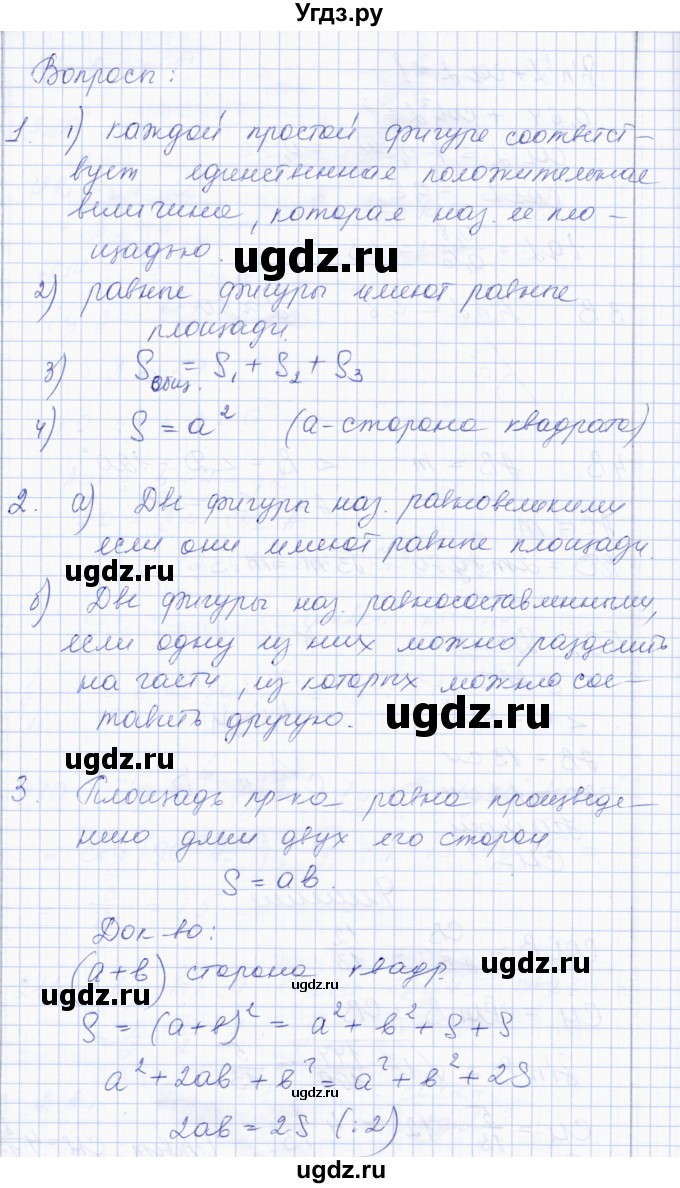 Угдз.ру
Вопросы:
1. 1) каждой простой фигуре соответст-
вует единственная положительная
величина, которая наз. ее пло-
щадью.
ugdz.ru
2) равные фигуры имеют равные
площади.
3) Sобщ. = S₁ + S₂ + S₃
4) S = a² (a - сторона квадрата)
ugdz.ru
2. а) Две фигуры наз. равновеликими
если они имеют равные площади.
ugdz.ru
б) Две фигуры наз. равносоставленными,
если одну из них можно разделить
на части, из которых можно сос-
тавить другую.
ugdz.ru
ugdz.ru
3. Площадь пр-ка равна произведе-
нию длин двух его сторон
S = ab.
Док-во:
ugdz.ru
(a+b) сторона квадр.
ugdz.ru
ugdz.ru
S = (a+b)² = a² + b² + S + S
a² + 2ab + b² = a² + b² + 2S
ugdz.ru
2ab = 2S (:2)
ugdz.ru